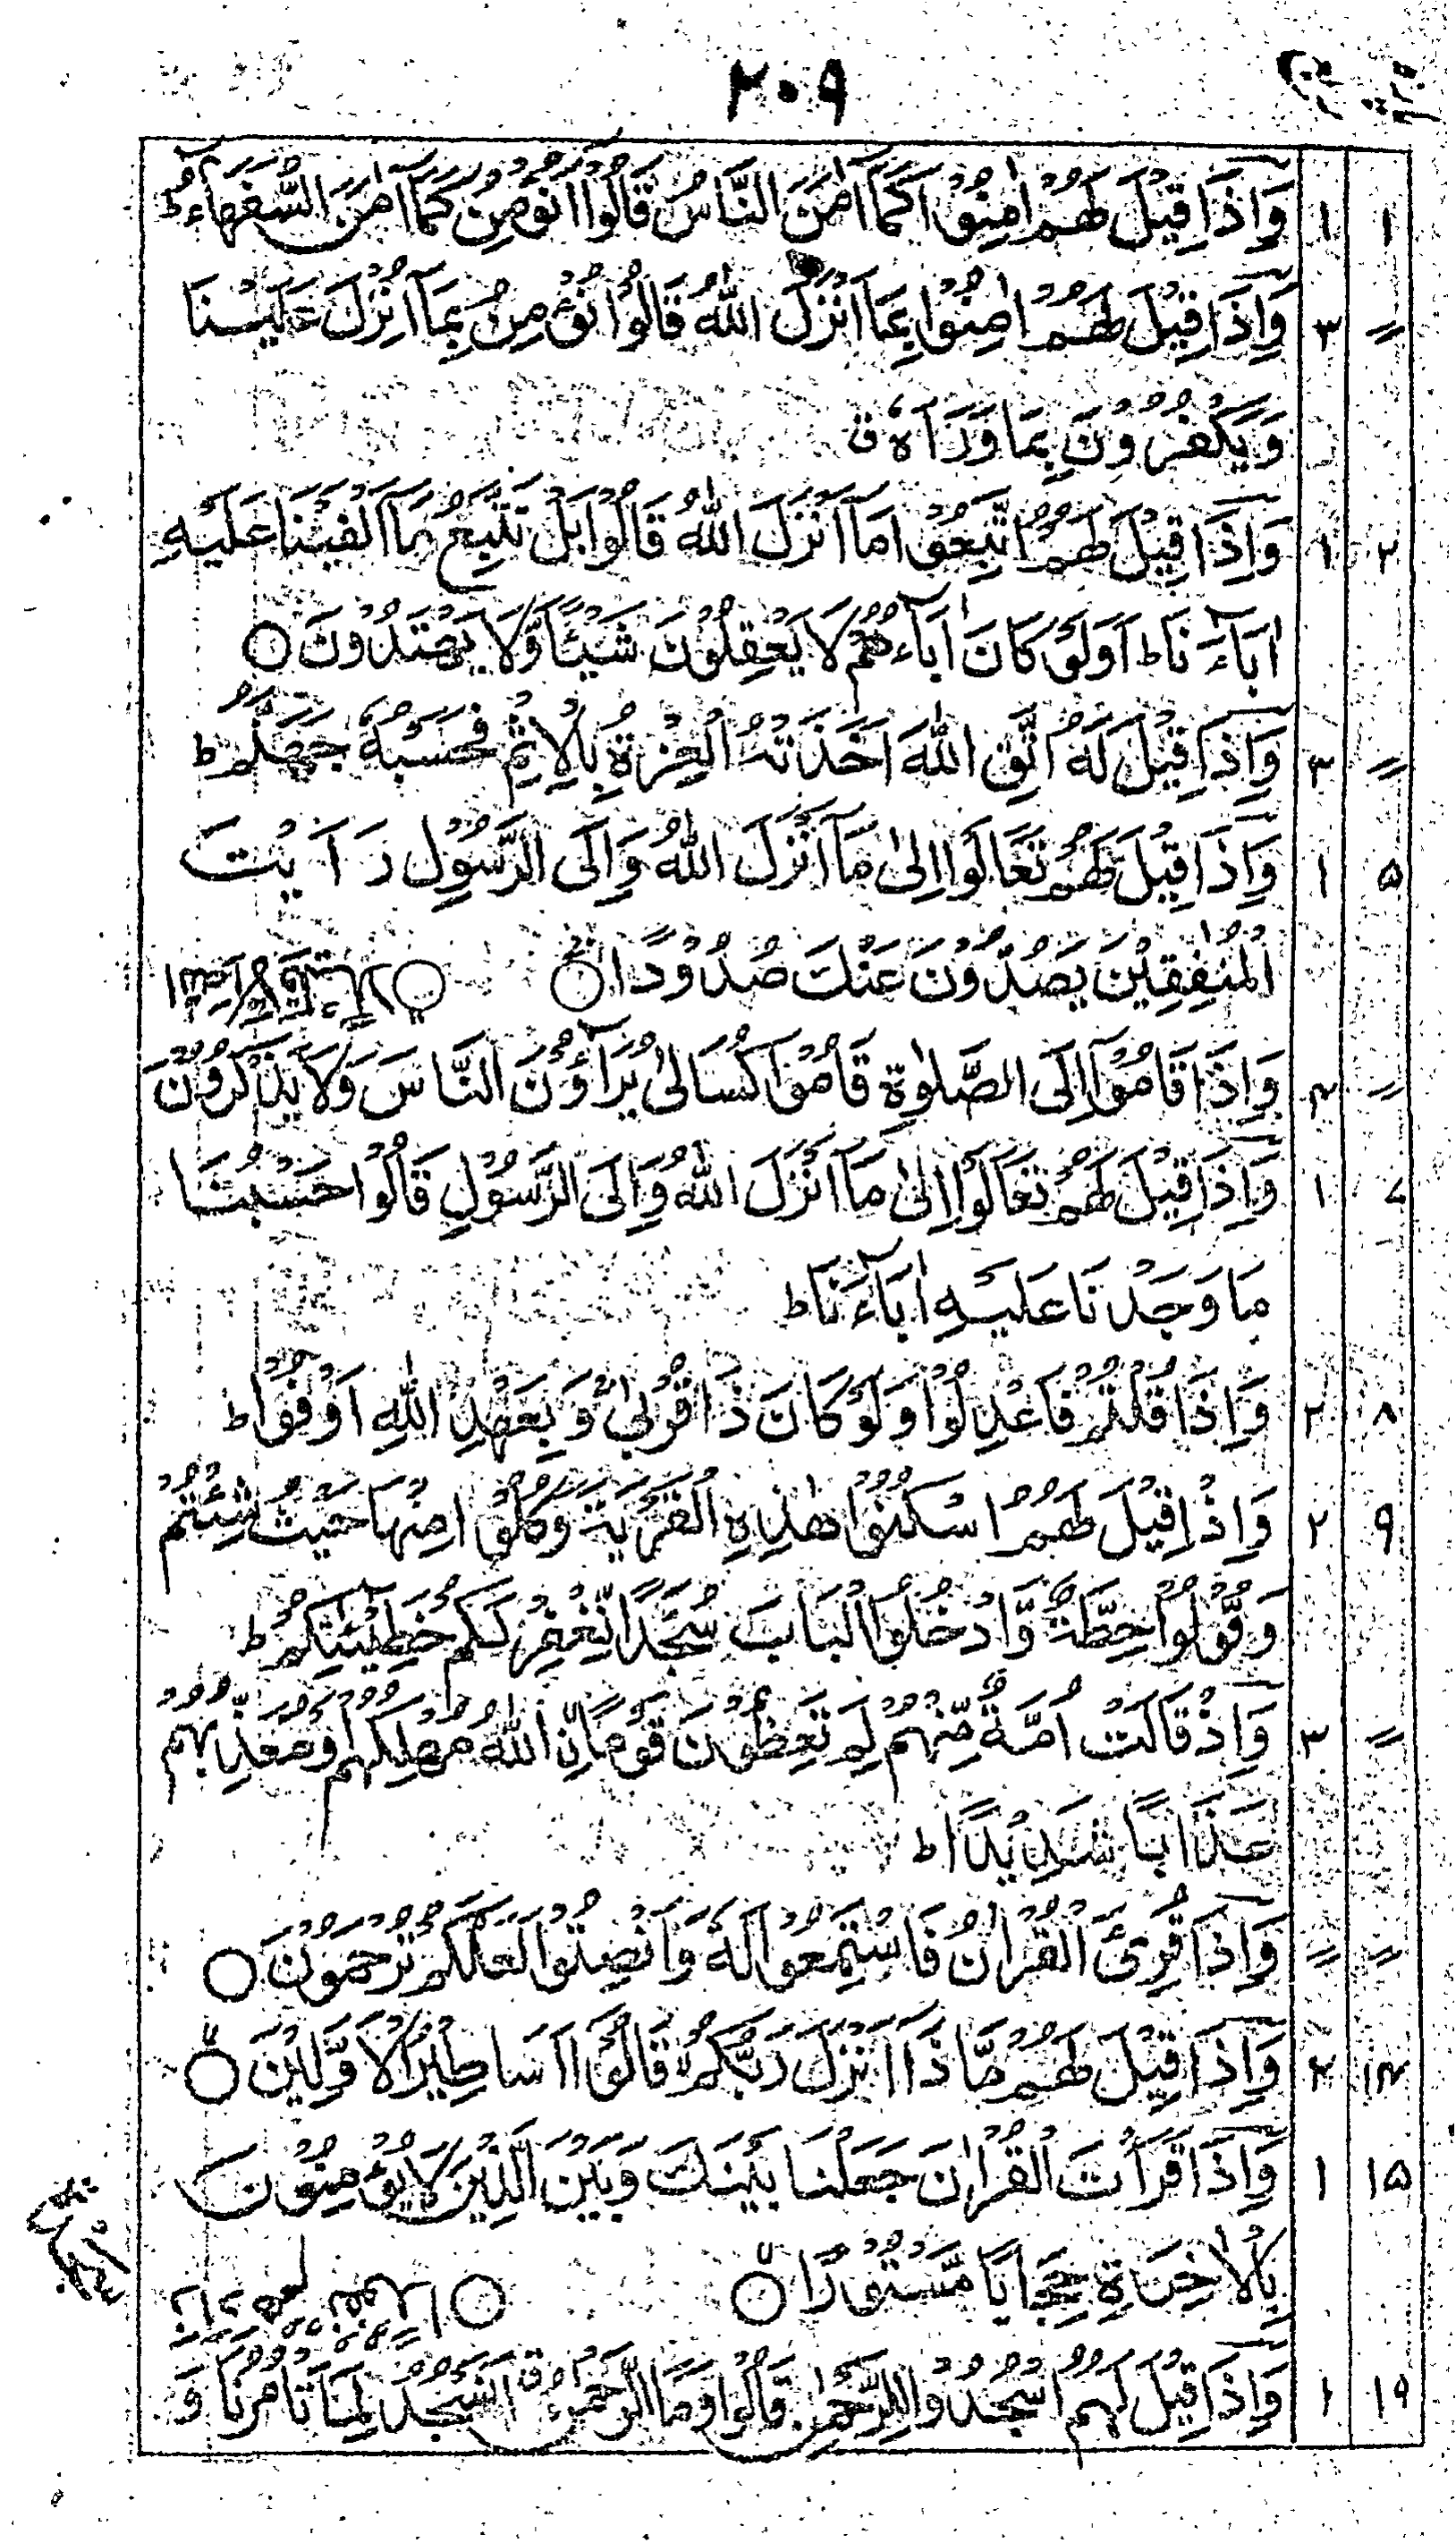 ٢٠٩
١ ١ وَاِذَا قِيْلَ لَهُمْ اٰمِنُوْا كَمَآ اٰمَنَ النَّاسُ قَالُوْٓا اَنُؤْمِنُ كَمَآ اٰمَنَ السُّفَهَآءُ ط
〃 ٣ وَاِذَا قِيْلَ لَهُمْ اٰمِنُوْا بِمَآ اَنْزَلَ اللّٰهُ قَالُوْا نُؤْمِنُ بِمَآ اُنْزِلَ عَلَيْنَا
وَيَكْفُرُوْنَ بِمَا وَرَآءَهٗ ق
٢ ١ وَاِذَا قِيْلَ لَهُمُ اتَّبِعُوْا مَآ اَنْزَلَ اللّٰهُ قَالُوْا بَلْ نَتَّبِعُ مَآ اَلْفَيْنَا عَلَيْهِ
اٰبَآءَنَا ط اَوَلَوْ كَانَ اٰبَآءُهُمْ لَا يَعْقِلُوْنَ شَيْئًا وَّلَا يَهْتَدُوْنَ ○
〃 ٣ وَاِذَا قِيْلَ لَهُ اتَّقِ اللّٰهَ اَخَذَتْهُ الْعِزَّةُ بِالْاِثْمِ فَحَسْبُهٗ جَهَنَّمُ ط
۵ ١ وَاِذَا قِيْلَ لَهُمْ تَعَالَوْا اِلٰى مَآ اَنْزَلَ اللّٰهُ وَاِلَى الرَّسُوْلِ رَاَيْتَ
الْمُنٰفِقِيْنَ يَصُدُّوْنَ عَنْكَ صُدُوْدًا ○
〃 ۴ وَاِذَا قَامُوْٓا اِلَى الصَّلٰوةِ قَامُوْا كُسَالٰى يُرَآءُوْنَ النَّاسَ وَلَا يَذْكُرُوْنَ
٧ ١ وَاِذَا قِيْلَ لَهُمْ تَعَالَوْا اِلٰى مَآ اَنْزَلَ اللّٰهُ وَاِلَى الرَّسُوْلِ قَالُوْا حَسْبُنَا
مَا وَجَدْنَا عَلَيْهِ اٰبَآءَنَا ط
٨ ٢ وَاِذَا قُلْتُمْ فَاعْدِلُوْا وَلَوْ كَانَ ذَا قُرْبٰى وَبِعَهْدِ اللّٰهِ اَوْفُوْا ط
٩ ٢ وَاِذْ قِيْلَ لَهُمُ اسْكُنُوْا هٰذِهِ الْقَرْيَةَ وَكُلُوْا مِنْهَا حَيْثُ شِئْتُمْ
وَقُوْلُوْا حِطَّةٌ وَّادْخُلُوا الْبَابَ سُجَّدًا نَّغْفِرْ لَكُمْ خَطِيْٓئٰتِكُمْ ط
〃 ٣ وَاِذْ قَالَتْ اُمَّةٌ مِّنْهُمْ لِمَ تَعِظُوْنَ قَوْمًا اللّٰهُ مُهْلِكُهُمْ اَوْ مُعَذِّبُهُمْ
عَذَابًا شَدِيْدًا ط
〃 〃 وَاِذَا قُرِئَ الْقُرْاٰنُ فَاسْتَمِعُوْا لَهٗ وَاَنْصِتُوْا لَعَلَّكُمْ تُرْحَمُوْنَ ○
١۴ ٢ وَاِذَا قِيْلَ لَهُمْ مَّاذَآ اَنْزَلَ رَبُّكُمْ قَالُوْٓا اَسَاطِيْرُ الْاَوَّلِيْنَ ○
١۵ ١ وَاِذَا قَرَاْتَ الْقُرْاٰنَ جَعَلْنَا بَيْنَكَ وَبَيْنَ الَّذِيْنَ لَا يُؤْمِنُوْنَ
بِالْاٰخِرَةِ حِجَابًا مَّسْتُوْرًا ○
١٩ ١ وَاِذَا قِيْلَ لَهُمُ اسْجُدُوْا لِلرَّحْمٰنِ قَالُوْا وَمَا الرَّحْمٰنُ ق اَنَسْجُدُ لِمَا تَاْمُرُنَا وَ